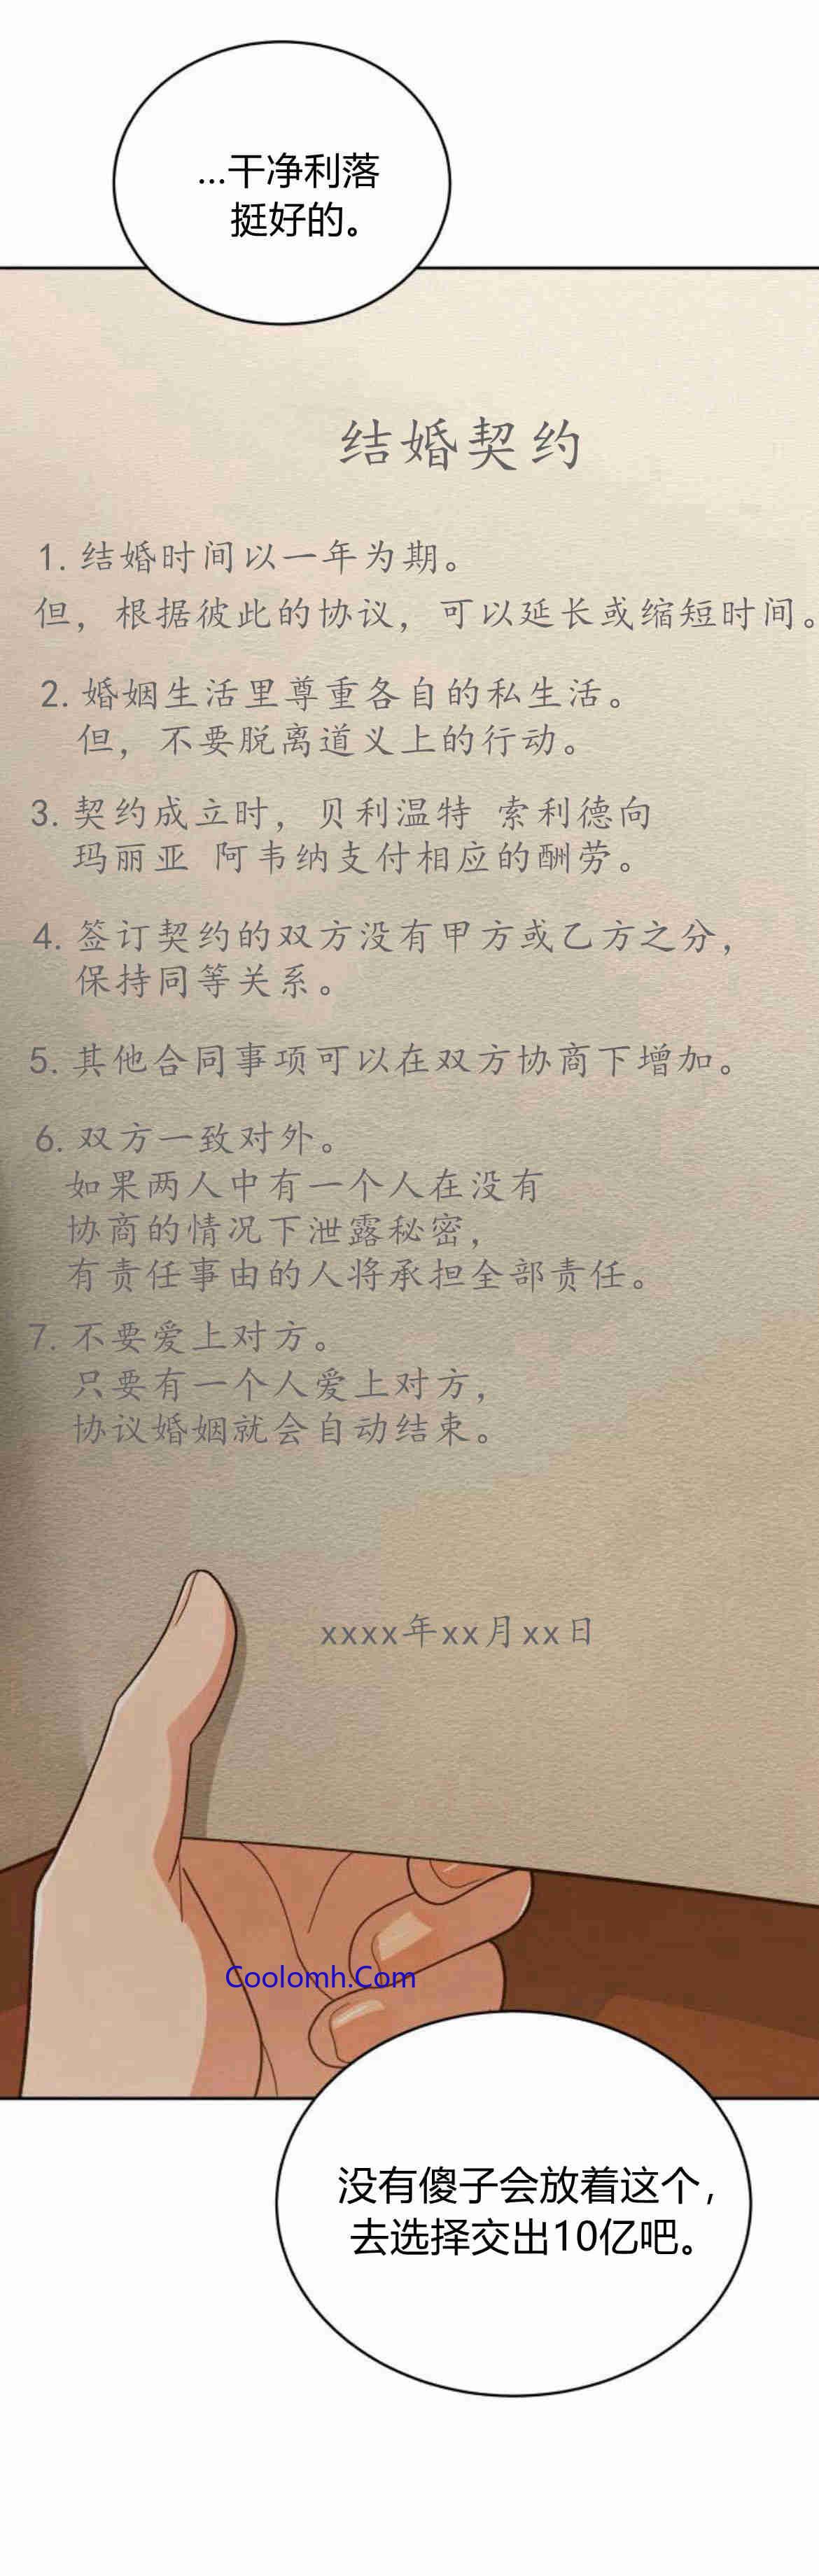 ...干净利落
挺好的。
结婚契约
1. 结婚时间以一年为期。
但，根据彼此的协议，可以延长或缩短时间。
2. 婚姻生活里尊重各自的私生活。
但，不要脱离道义上的行动。
3. 契约成立时，贝利温特 索利德向
玛丽亚 阿韦纳支付相应的酬劳。
4. 签订契约的双方没有甲方或乙方之分，
保持同等关系。
5. 其他合同事项可以在双方协商下增加。
6. 双方一致对外。
如果两人中有一个人在没有
协商的情况下泄露秘密，
有责任事由的人将承担全部责任。
7. 不要爱上对方。
只要有一个人爱上对方，
协议婚姻就会自动结束。
xxxx年xx月xx日
Coolomh.Com
没有傻子会放着这个，
去选择交出10亿吧。